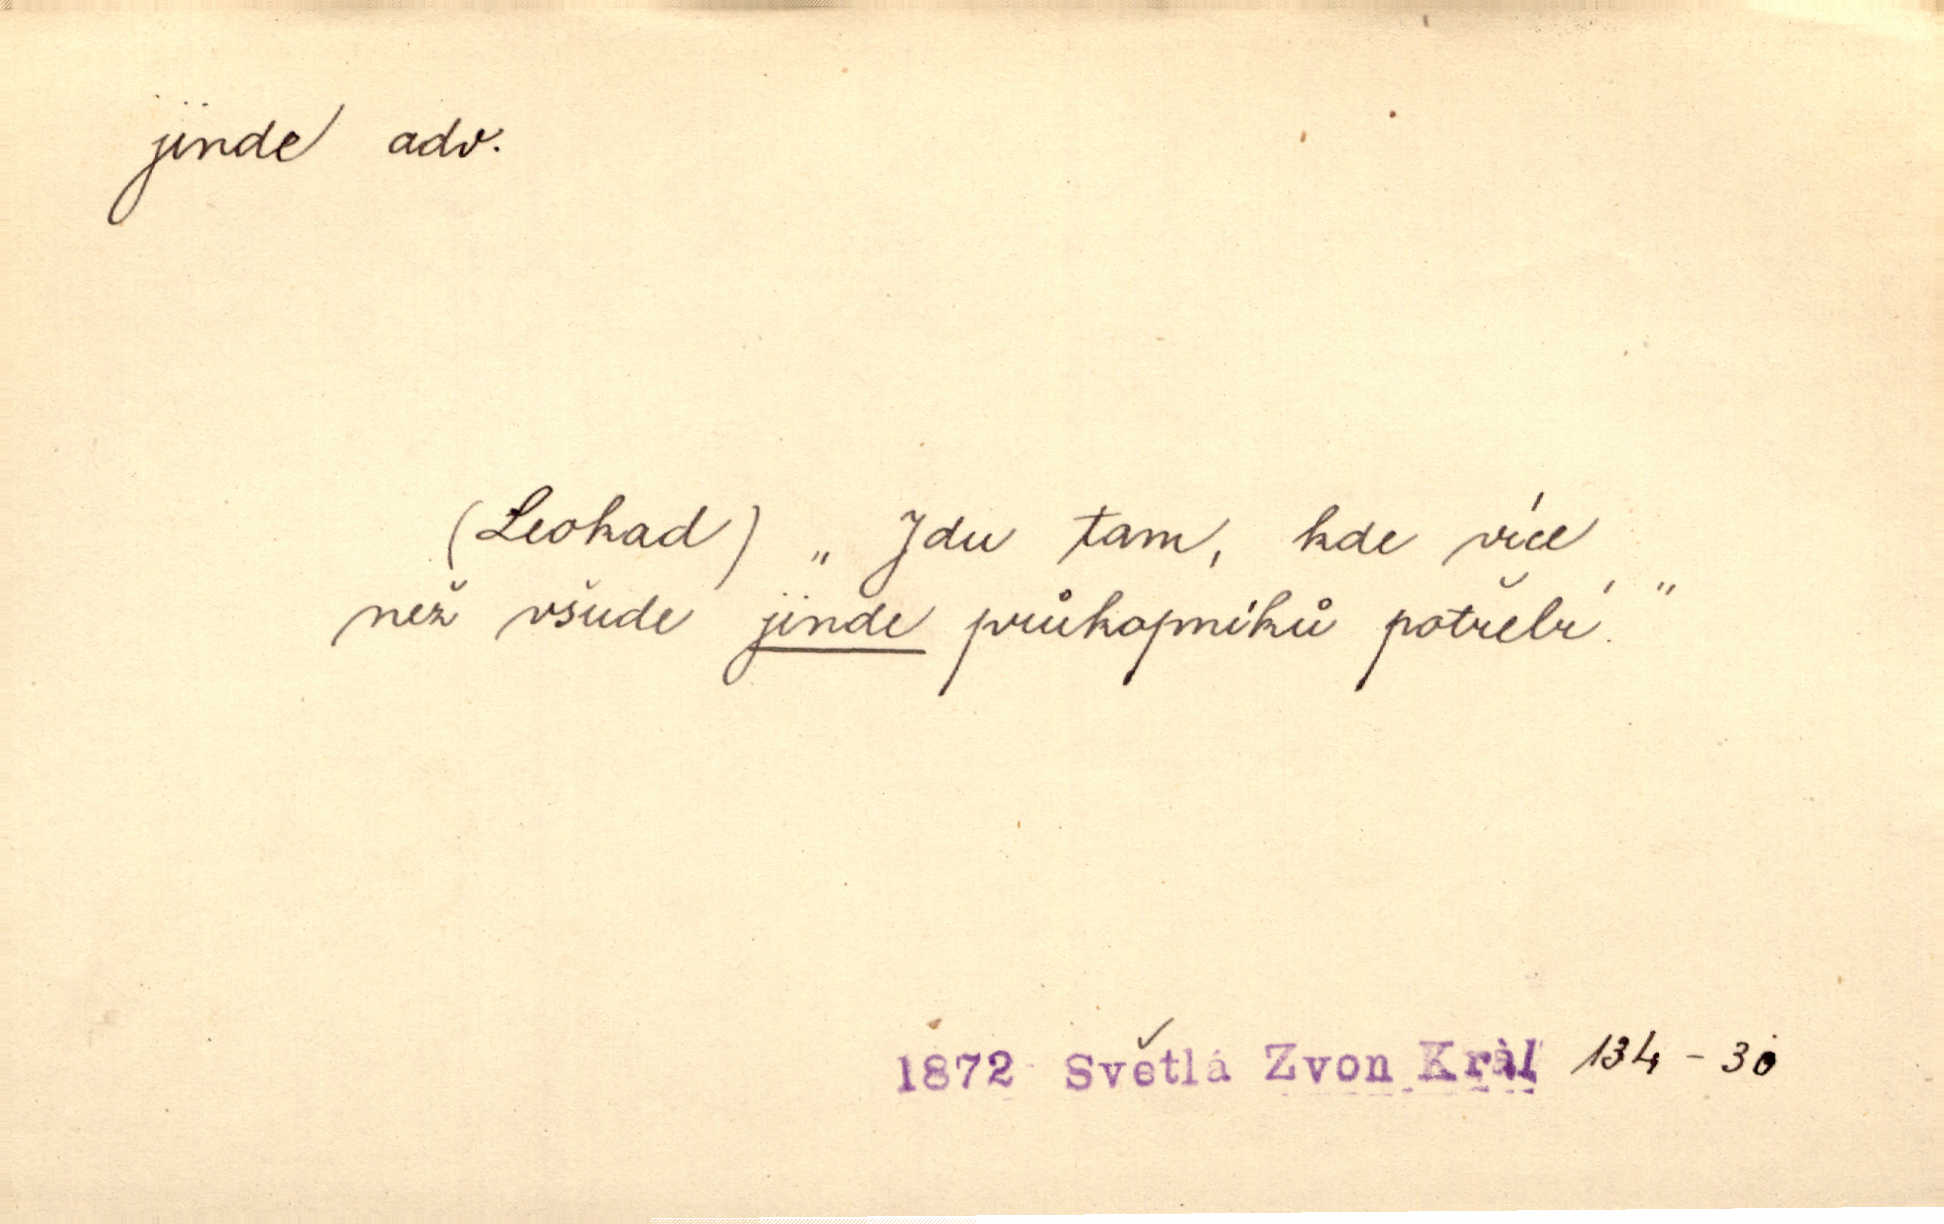 jinde adv.
(Leokad) „Jdu tam, kde více
než všude jinde průkopníků potřebí."
1872 Světlá Zvon Král 134 - 30